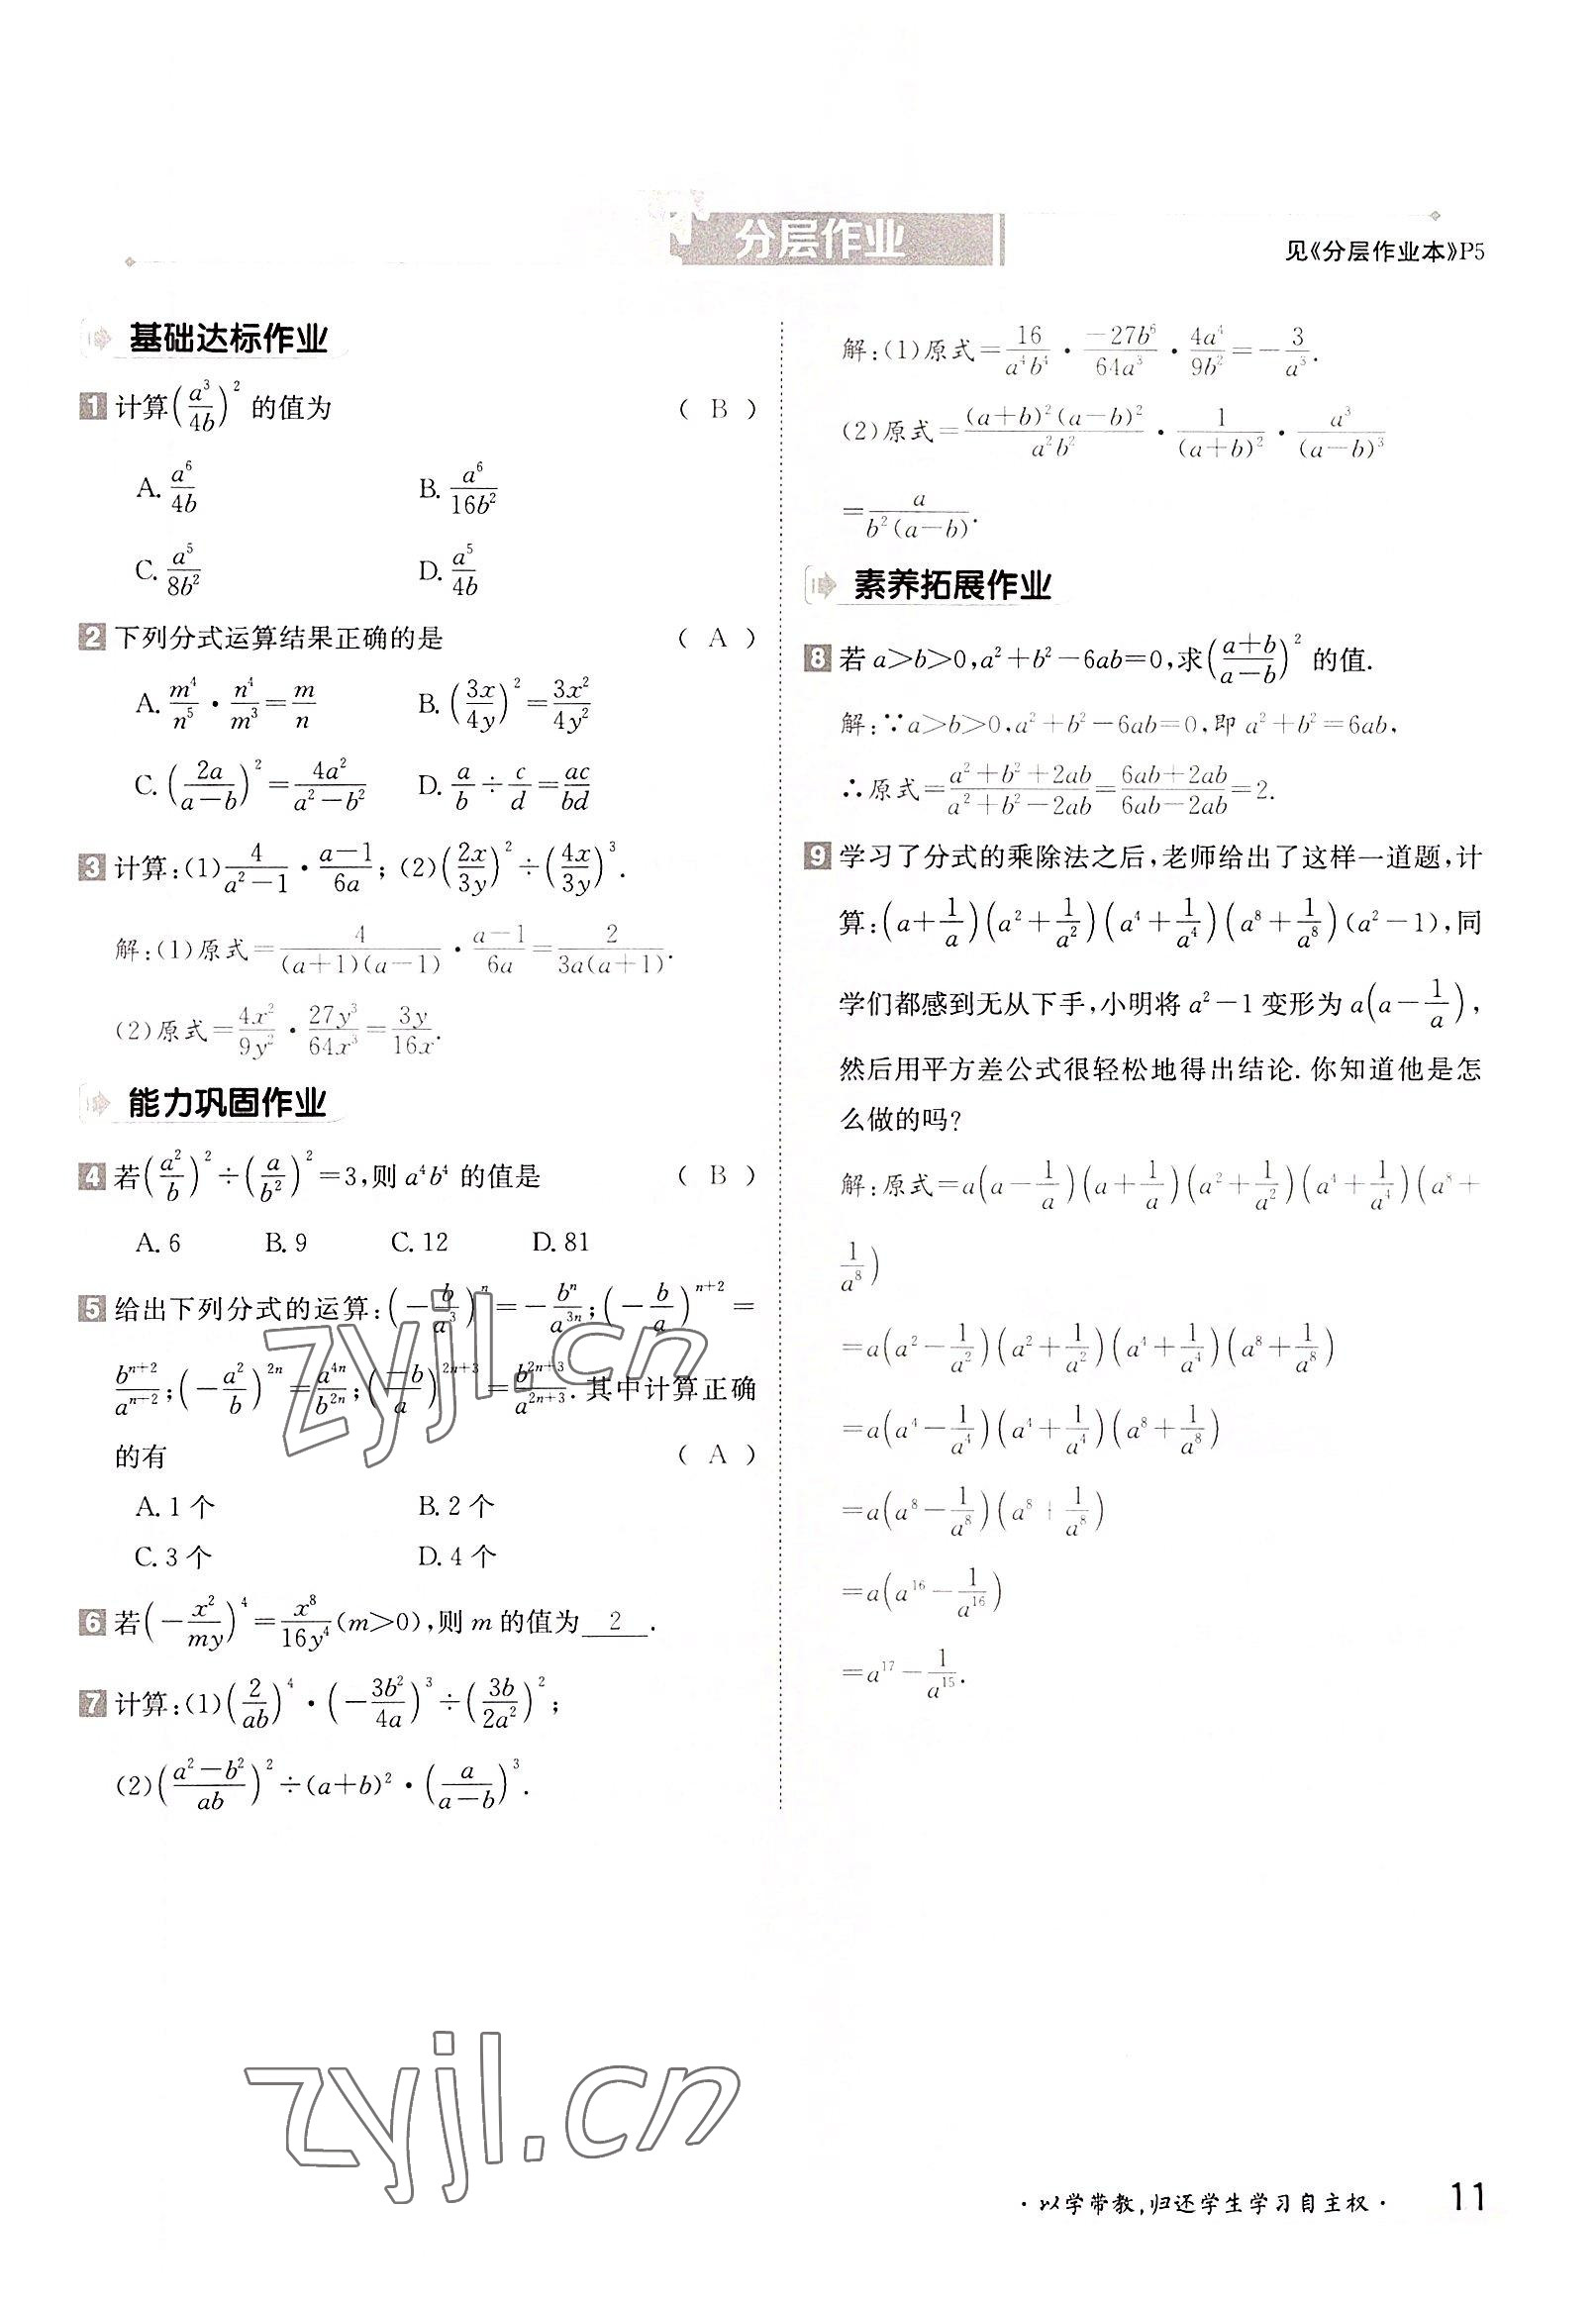 分层作业
见《分层作业本》P5
基础达标作业
1 计算(a³/4b)² 的值为 ( B )
A. a⁶/4b B. a⁶/16b²
C. a⁵/8b² D. a⁵/4b
2 下列分式运算结果正确的是 ( A )
A. m⁴/n⁵ · n⁴/m³ = m/n B. (3x/4y)² = 3x²/4y²
C. (2a/(a−b))² = 4a²/(a²−b²) D. a/b ÷ c/d = ac/bd
3 计算:(1) 4/(a²−1) · (a−1)/6a; (2) (2x/3y)² ÷ (4x/3y)³.
解:(1)原式= 4/((a+1)(a−1)) · (a−1)/6a = 2/(3a(a+1)).
(2)原式= 4x²/9y² · 27y³/64x³ = 3y/16x.
能力巩固作业
4 若(a²/b)² ÷ (a/b²)² =3,则 a⁴b⁴ 的值是 ( B )
A. 6 B. 9 C. 12 D. 81
5 给出下列分式的运算:(−b/a³)ⁿ = −bⁿ/a³ⁿ;(−b/a)ⁿ⁺² =
bⁿ⁺²/aⁿ⁺²;(−a²/b)²ⁿ = a⁴ⁿ/b²ⁿ;(−b/a)²ⁿ⁺³ = b²ⁿ⁺³/a²ⁿ⁺³. 其中计算正确
的有 ( A )
A. 1 个 B. 2 个
C. 3 个 D. 4 个
6 若(−x²/my)⁴ = x⁸/16y⁴ (m>0),则 m 的值为 2 .
7 计算:(1) (2/ab)⁴ · (−3b²/4a)³ ÷ (3b/2a²)²;
(2) ((a²−b²)/ab)² ÷ (a+b)² · (a/(a−b))³.
解:(1)原式= 16/a⁴b⁴ · −27b⁶/64a³ · 4a⁴/9b² = −3/a³.
(2)原式= (a+b)²(a−b)²/a²b² · 1/(a+b)² · a³/(a−b)³
= a/(b²(a−b)).
素养拓展作业
8 若 a>b>0,a²+b²−6ab=0,求((a+b)/(a−b))² 的值.
解:∵a>b>0,a²+b²−6ab=0,即 a²+b²=6ab,
∴原式= (a²+b²+2ab)/(a²+b²−2ab) = (6ab+2ab)/(6ab−2ab) =2.
9 学习了分式的乘除法之后,老师给出了这样一道题,计
算:(a+1/a)(a²+1/a²)(a⁴+1/a⁴)(a⁸+1/a⁸)(a²−1),同
学们都感到无从下手,小明将 a²−1 变形为 a(a−1/a),
然后用平方差公式很轻松地得出结论. 你知道他是怎
么做的吗?
解:原式=a(a−1/a)(a+1/a)(a²+1/a²)(a⁴+1/a⁴)(a⁸+
1/a⁸)
=a(a²−1/a²)(a²+1/a²)(a⁴+1/a⁴)(a⁸+1/a⁸)
=a(a⁴−1/a⁴)(a⁴+1/a⁴)(a⁸+1/a⁸)
=a(a⁸−1/a⁸)(a⁸+1/a⁸)
=a(a¹⁶−1/a¹⁶)
=a¹⁷−1/a¹⁵.
zyjl.cn
zyjl.cn
·以学带教,归还学生学习自主权· 11